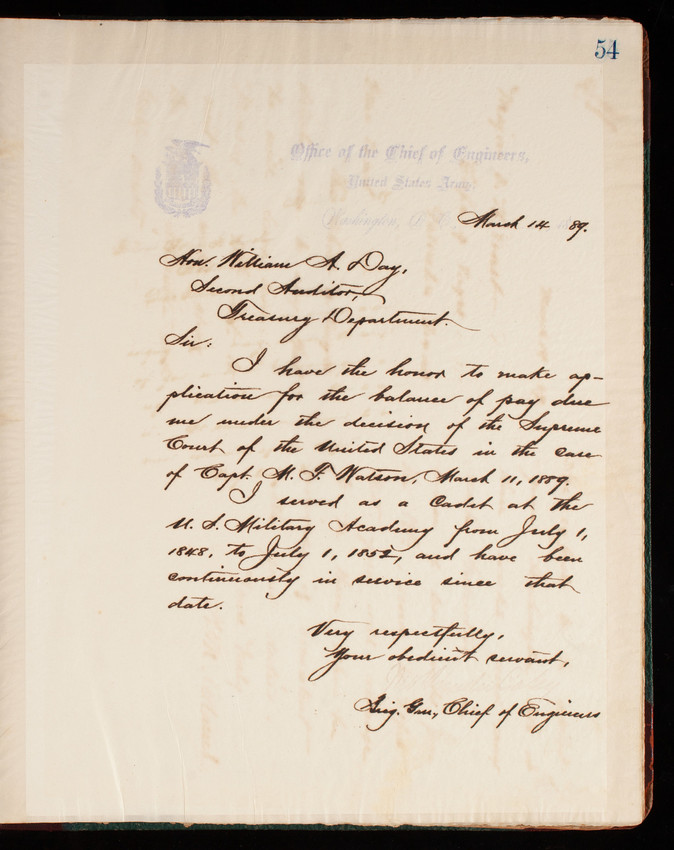 54
Office of the Chief of Engineers,
United States Army,
Washington, D. C. March 14 89.
Hon. William A. Day,
Second Auditor,
Treasury Department.
Sir:
I have the honor to make ap-
plication for the balance of pay due
me under the decision of the Supreme
Court of the United States in the case
of Capt. M. F. Watson, March 11, 1889.
I served as a Cadet at the
U. S. Military Academy from July 1,
1848, to July 1, 1852, and have been
continuously in service since that
date.
Very respectfully,
Your obedient servant,
Brig. Gen, Chief of Engineers